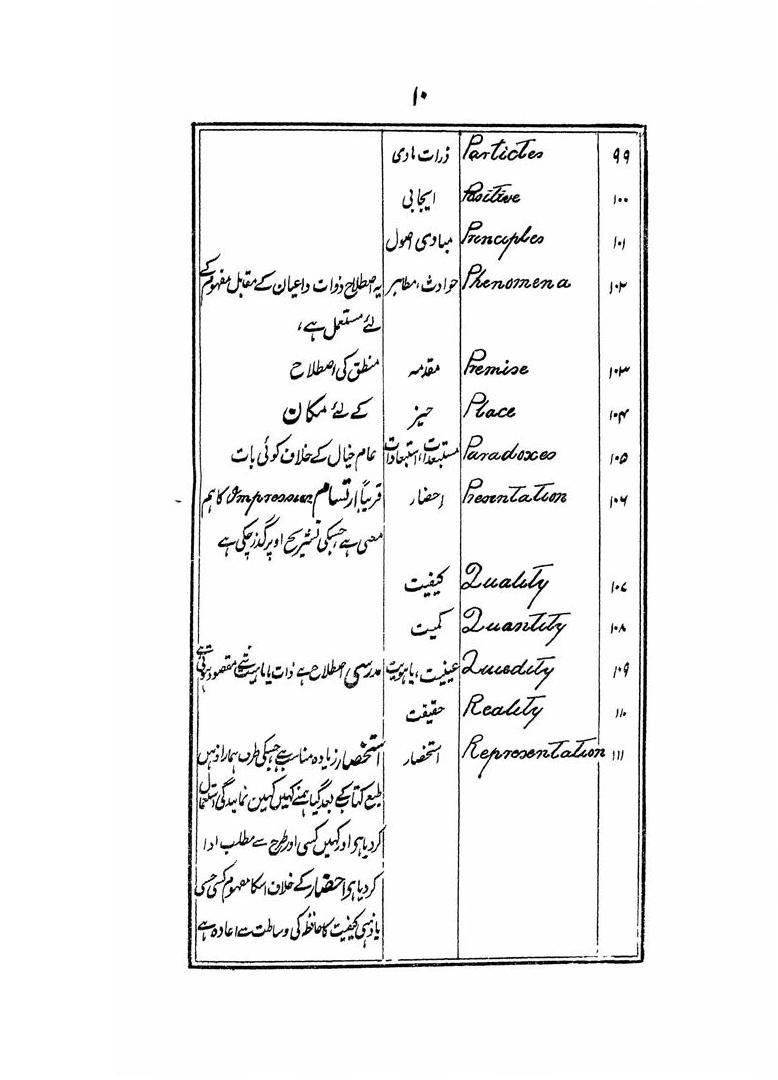 ۱۰
۹۹ Particles ذرات مادی
۱۰۰ Positive ایجابی
۱۰۱ Principles مبادی اصول
۱۰۲ Phenomena حوادث، مظاہر یہ اصطلاح ذوات واعیان کے مقابل مفہوم کے
لئے مستعمل ہے،
۱۰۳ Premise مقدمہ منطق کی اصطلاح
۱۰۴ Place حیز کے لئے مکان
۱۰۵ Paradoxes مستبعدات، استبعادات عام خیال کے خلاف کوئی بات
۱۰۶ Presentation احضار قریباً ارتسام Impression کا ہم
معنی ہے جسکی تشریح اوپر گذر چکی ہے
۱۰۷ Quality کیفیت
۱۰۸ Quantity کمیت
۱۰۹ Quiddity عینیت، یا ہویت مدرسی اصطلاح ہے ذات یا ماہیت شے مقصود ہوتی ہے
۱۱۰ Reality حقیقت
۱۱۱ Representation استحضار استحضار زیادہ مناسب ہے جسکی طرف ہمارا ذہن
طبع کتاب کے بعد گیا ہمنے کہیں کہین نمایندگی استعمال
کردیا ہو اور کہیں کسی اور طرح سے مطلب ادا
کردیا ہو احضار کے خلاف اسکا مفہوم کسی حسی
یا ذہنی کیفیت کا حافظہ کی وساطت سے اعادہ ہے